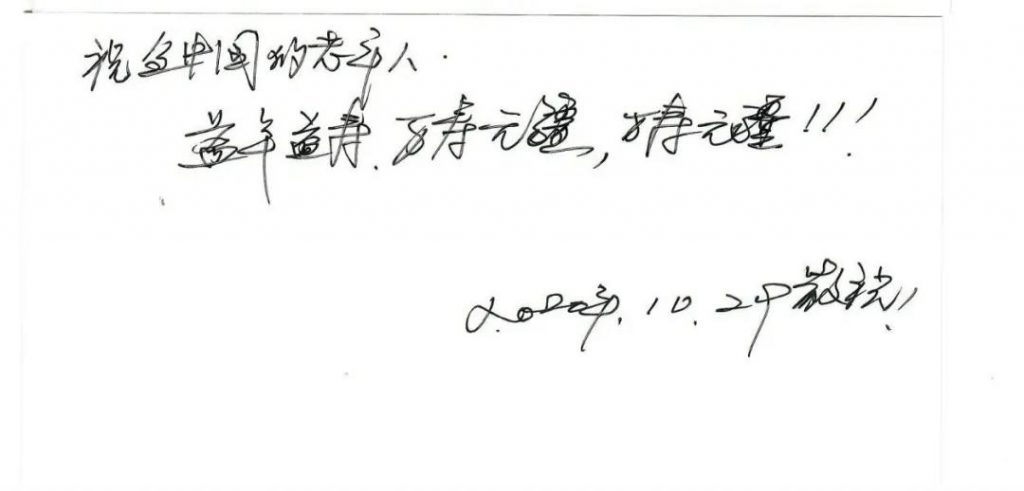 祝全中国的老年人.
益年益寿、万寿无疆,万寿无疆!!!
2020年.10.29敬祝!